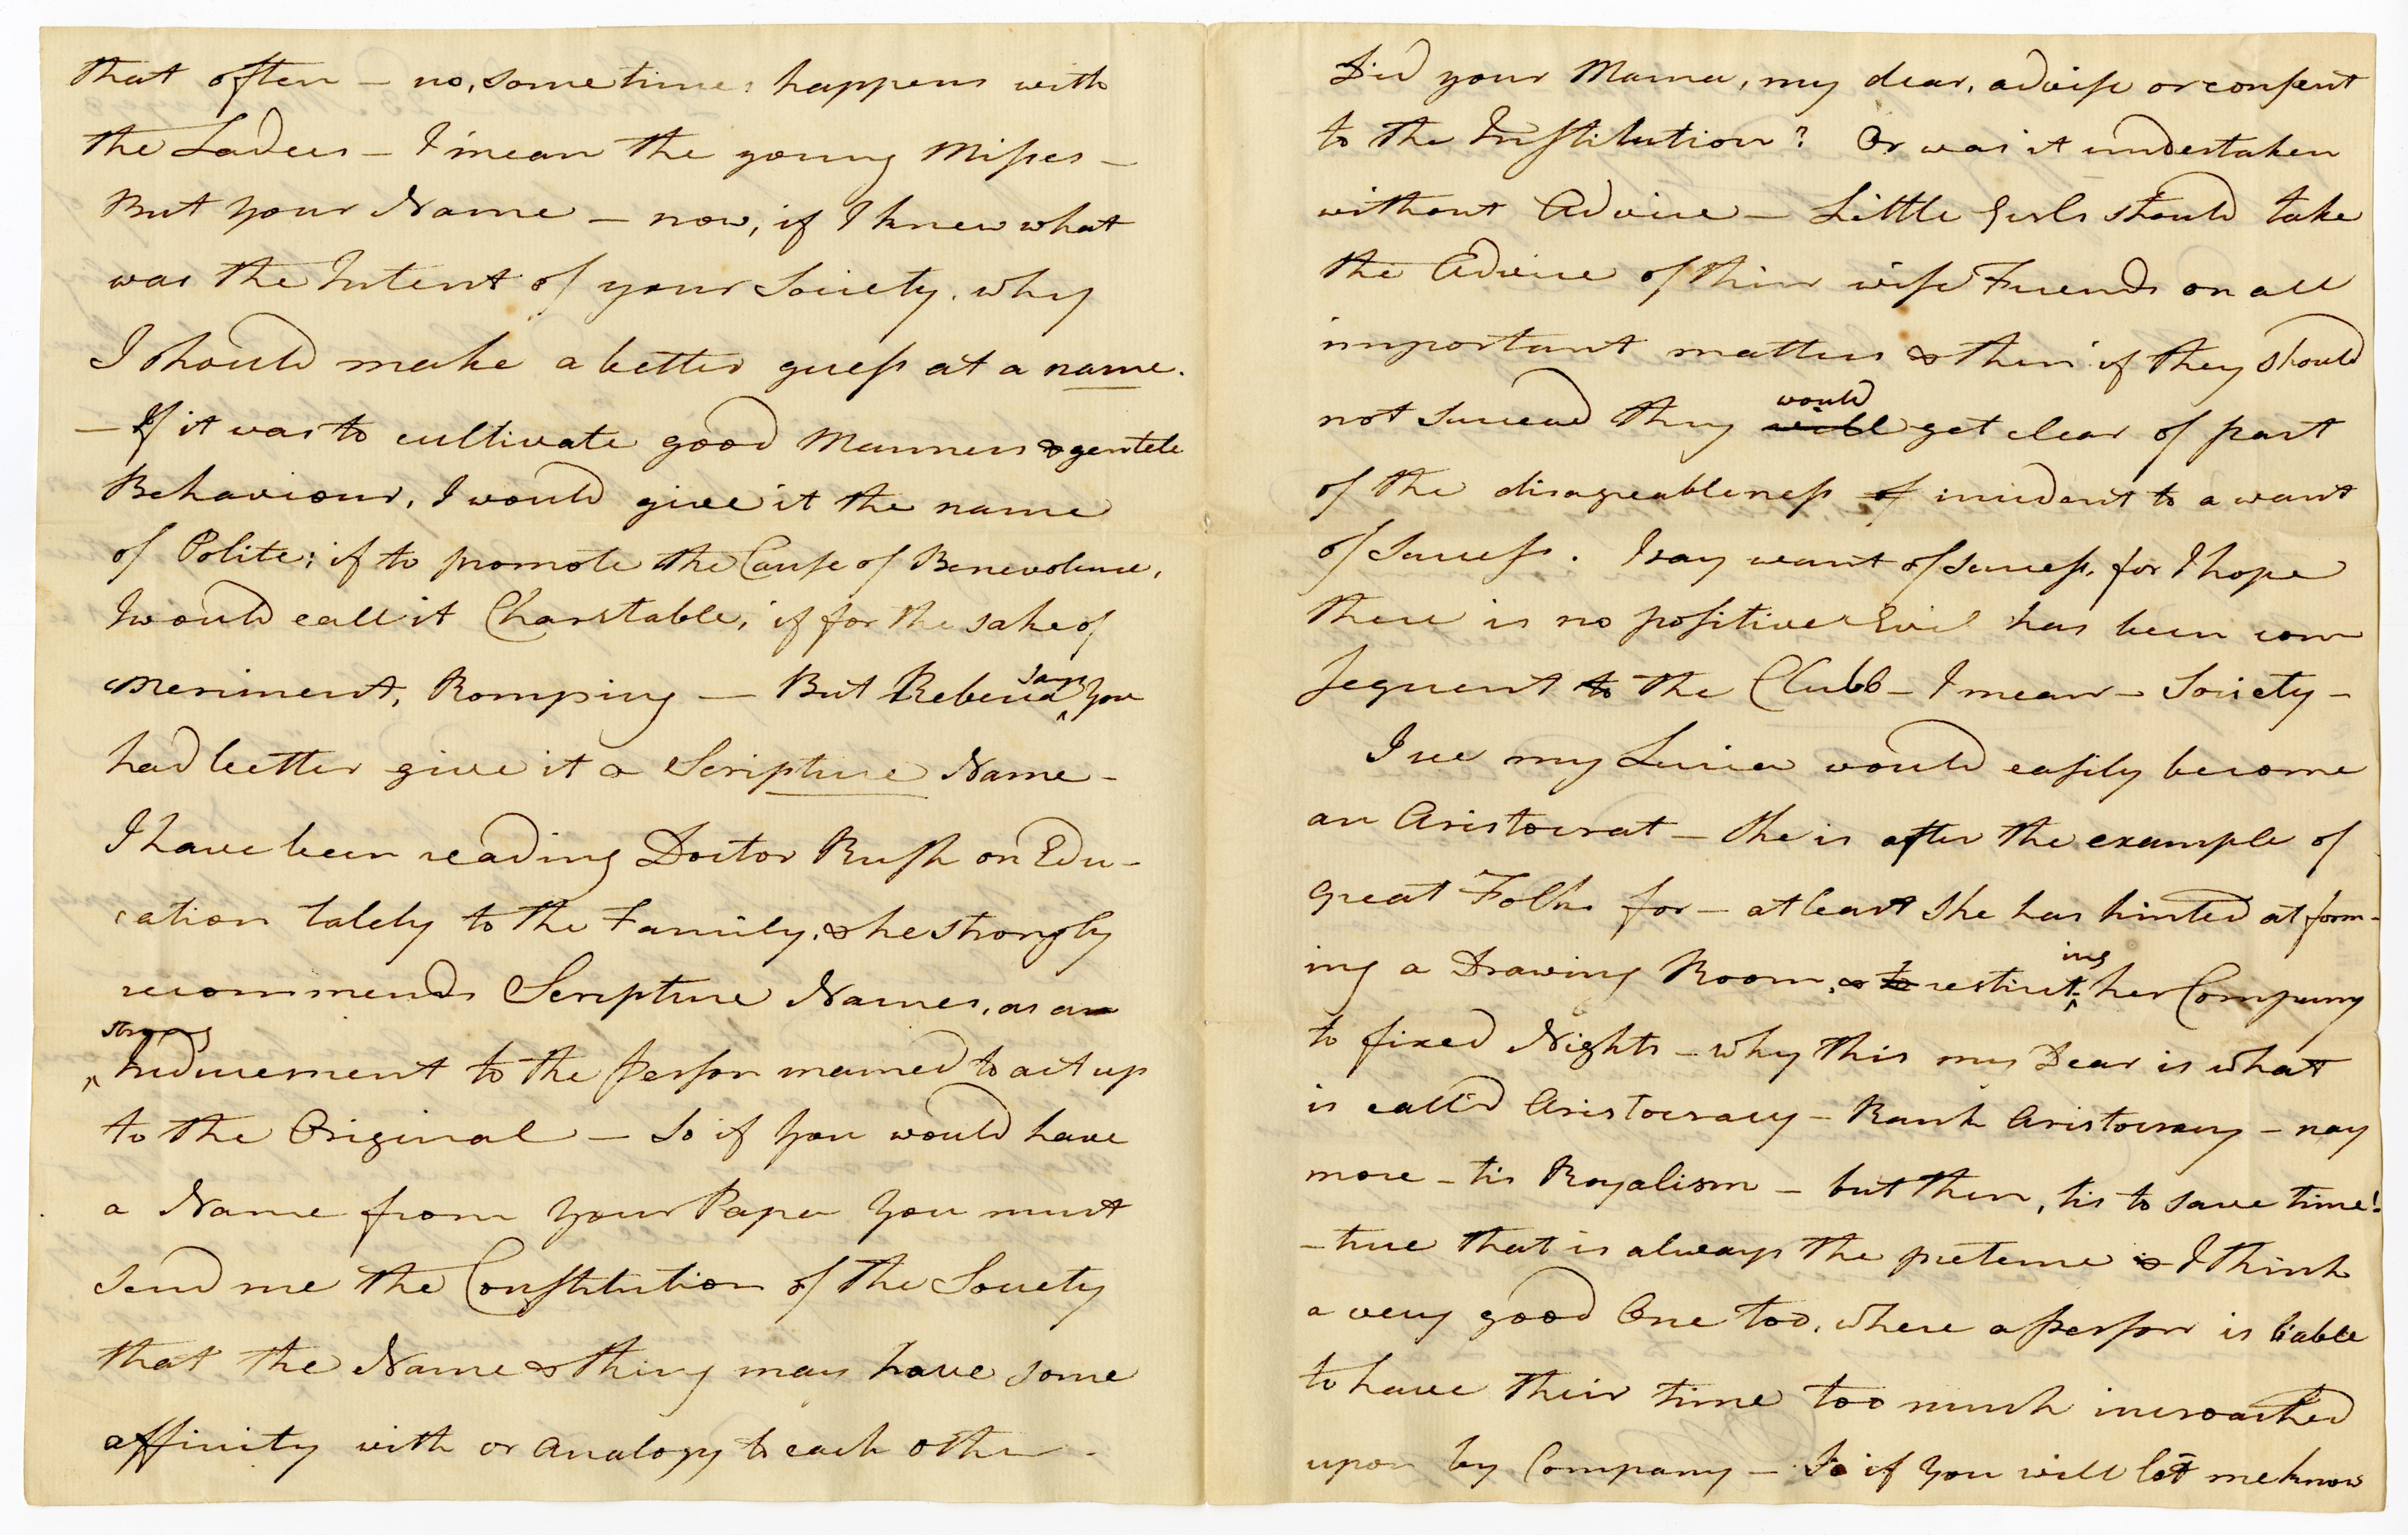 that often – no, sometimes happens with
the Ladies – I mean the young Misses –
But your Name – now, if I knew what
was the Intent of your Society, why
I should make a better guess at a name.
– If it was to cultivate good Manners & genteele
Behaviour, I would give it the name
of Polite; if to promote the Cause of Benevolence,
I would call it Charitable; if for the sake of
Meriment, Romping – But Rebecca Jane You
had better give it a Scripture Name –
I have been reading Doctor Rush on Edu-
cation lately to the Family, & he strongly
recommends Scripture Names, as a
strong Inducement to the person named to act up
to the Original – So if You would have
a Name from your Papa You must
send me the Constitution of the Society
that the Name & thing may have some
affinity with or Analogy to each other –
Did your Mama, my dear, advise or consent
to the Institution? Or was it undertaken
without Advice – Little Girls should take
the Advice of their wise Friends on all
important matters & then if they should
not succeed they will would get clear of part
of the disagreableness of incident to a want
of success. I say want of success, for I hope
there is no positive Evil has been con
sequent to the Clubb – I mean – Society –
I see my Lucia would easily become
an Aristocrat – She is after the example of
great Folks for – at least She has hinted at form-
ing a Drawing Room, & to restricting her Company
to fixed Nights – why this my Dear is what
is call'd Aristocracy – Rank Aristocracy – nay
more – tis Royalism – but then, tis to save time!
– true that is always the pretence & I think
a very good One too, where a person is liable
to have their time too much incroached
upon by Company – So if You will let me know